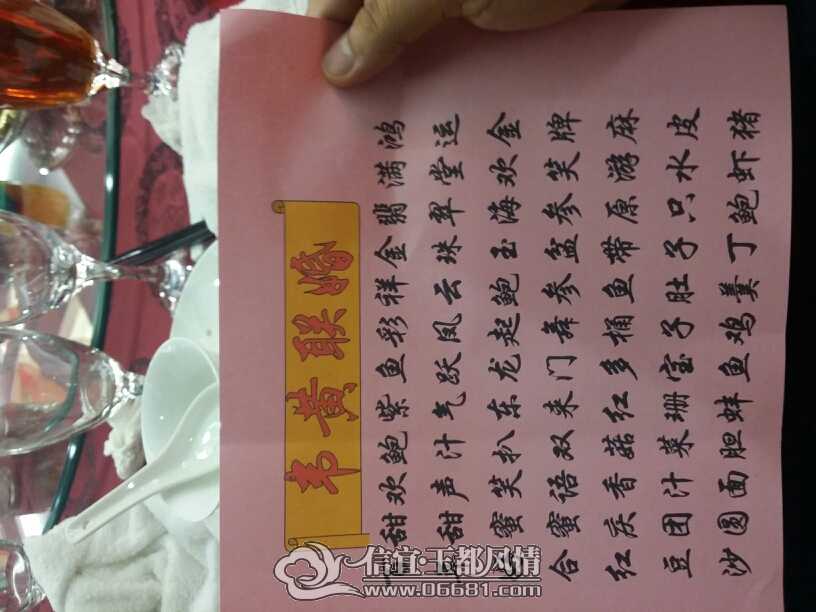 韦黄联婚
鸿运金牌麻皮猪
满堂欢笑游水虾
翡翠海参原只鲍
金珠玉盆带子丁
祥云鲍参鱼肚羹
彩凤起舞桶子鸡
鱼跃龙门多宝鱼
紫气东来红珊蚌
鲍汁扒双菇菜胆
欢声笑语香汁面
甜甜蜜蜜庆团圆
合红豆沙
信宜·玉都风情
www.06681.com